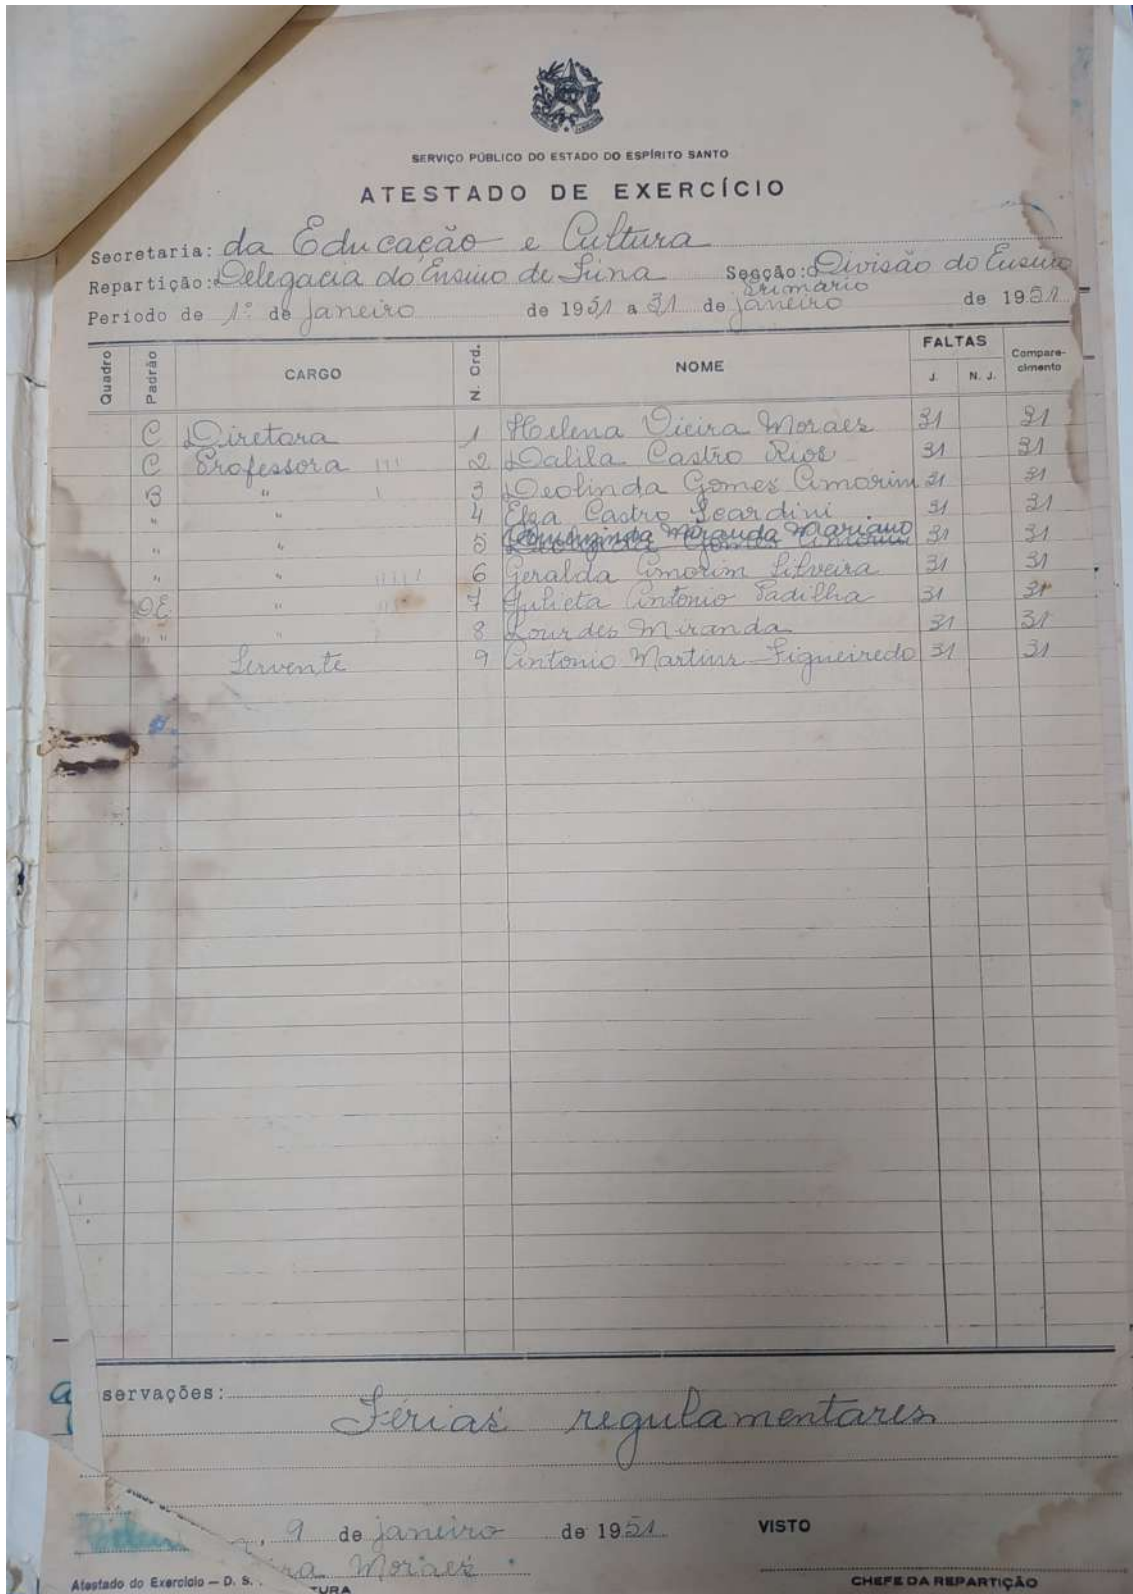 SERVIÇO PÚBLICO DO ESTADO DO ESPÍRITO SANTO
ATESTADO DE EXERCÍCIO
Secretaria: da Educação e Cultura
Repartição: Delegacia do Ensino de Iúna Secção: Divisão do Ensino Primário
Período de 1º de janeiro de 1951 a 31 de janeiro de 1951
Quadro Padrão CARGO N. Ord. NOME FALTAS J. N. J. Comparecimento
C Diretora 1 Helena Vieira Moraes 31 31
C Professora III 2 Dalila Castro Rios 31 31
B " I 3 Deolinda Gomes Amorim 31 31
" " 4 Elza Castro Scardini 31 31
" " 5 Miranda Mariano 31 31
" " 6 Geralda Amorim Silveira 31 31
DE " 7 Julieta Antonio Padilha 31 31
" " " 8 Lourdes Miranda 31 31
Servente 9 Antonio Martins Figueiredo 31 31
servações:
Férias regulamentares
, 9 de janeiro de 1951 VISTO
ra Moraes
Atestado do Exercício – D. S. TURA CHEFE DA REPARTIÇÃO